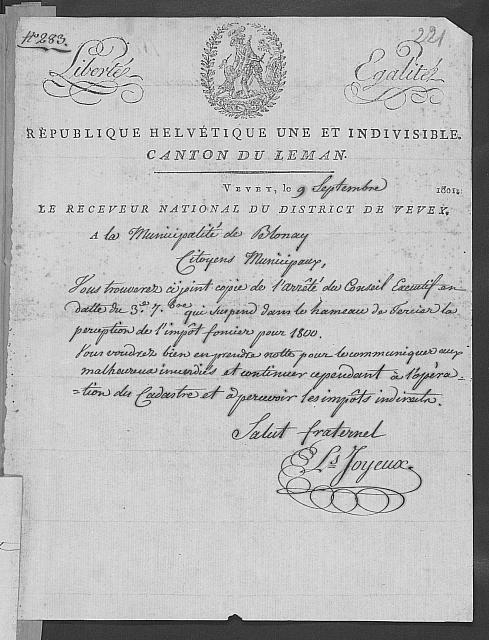 N.° 283.
221
Liberté,
Egalité,
RÉPUBLIQUE HELVÉTIQUE UNE ET INDIVISIBLE.
CANTON DU LEMAN.
VEVEY, le 9 Septembre 1801.
LE RECEVEUR NATIONAL DU DISTRICT DE VEVEY,
A la Municipalité de Blonay
Citoyens Municipaux,
Vous trouverez ci joint copie de l'arrêté du Conseil Executif en
datte du 3.e 7.bre qui suspend dans le hameau de Cercier la
perception de l'impôt foncier pour 1800.
Vous voudrez bien en prendre notte pour le communiquer aux
malheureux incendiés et continuer cependant à l'opéra=
=tion des Cadastre et à percevoir les impôts indirects.
Salut fraternel
Ls Joyeux.